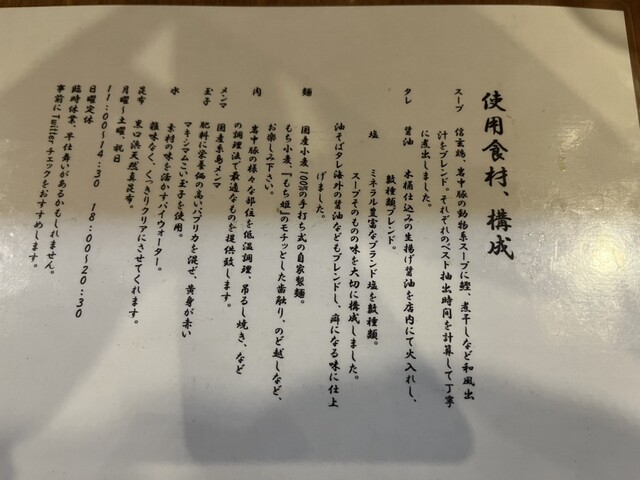 使用食材、構成
スープ　信玄鶏、嵩中豚の動物系スープに鰹、煮干しなど和風出
汁をブレンド。それぞれのベスト抽出時間を計算して丁寧
に煮出しました。
タレ　醤油　木桶仕込みの生揚げ醤油を店内にて火入れし、
数種類ブレンド。
塩　ミネラル豊富なブランド塩を数種類。
スープそのものの味を大切に構成しました。
油そばタレ海外の醤油などもブレンドし、癖になる味に仕上
げました。
麺　国産小麦100%の手打ち式の自家製麺。
もち小麦、『もち姫』のモチッとした歯触り、のど越しなど、
お楽しみ下さい。
肉　嵩中豚の様々な部位を低温調理、吊るし焼き、など
の調理法で最適なものを提供致します。
メンマ　国産糸島メンマ
玉子　肥料に栄養価の高いパプリカを混ぜ、黄身が赤い
マキシマムこい玉子を使用。
水　素材の味を活かすパイウォーター。
雑味なく、くっきりクリアにさせてくれます。
昆布　黒口浜天然真昆布。
月曜〜土曜、祝日
11:00〜14:30　18:00〜20:30
日曜定休
臨時休業、早仕舞いがあるかもしれません。
事前にTwitterチェックをおすすめします。